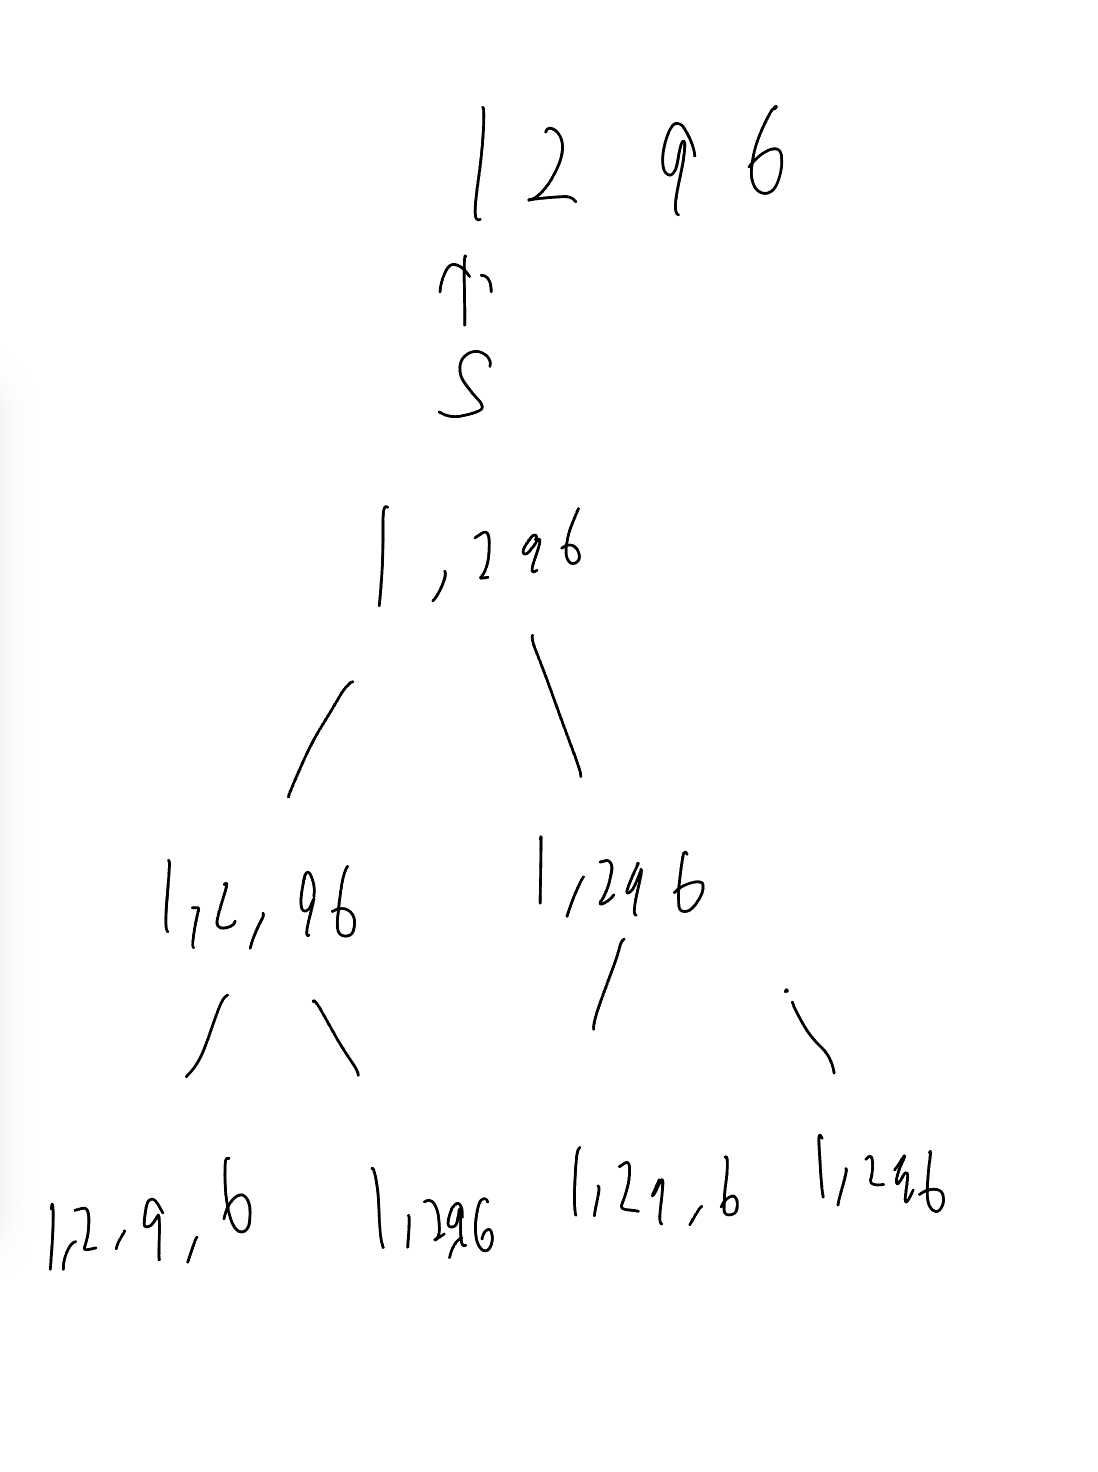 1 2 9 6
S
1,296
1,2,96 1,296
1,2,9,6 1,296 1,29,6 1,296